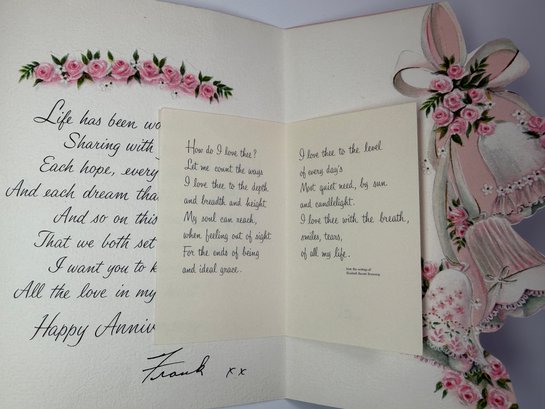 Life has been wo
Sharing with
Each hope, every
And each dream tha
And so on this
That we both set
I want you to k
All the love in my
Happy Anniv
Frank xx
How do I love thee?
Let me count the ways
I love thee to the depth
and breadth and height
My soul can reach,
when feeling out of sight
For the ends of being
and ideal grace.
I love thee to the level
of every day's
Most quiet need, by sun
and candlelight.
I love thee with the breath,
smiles, tears,
of all my life.
from the writings of
Elizabeth Barrett Browning